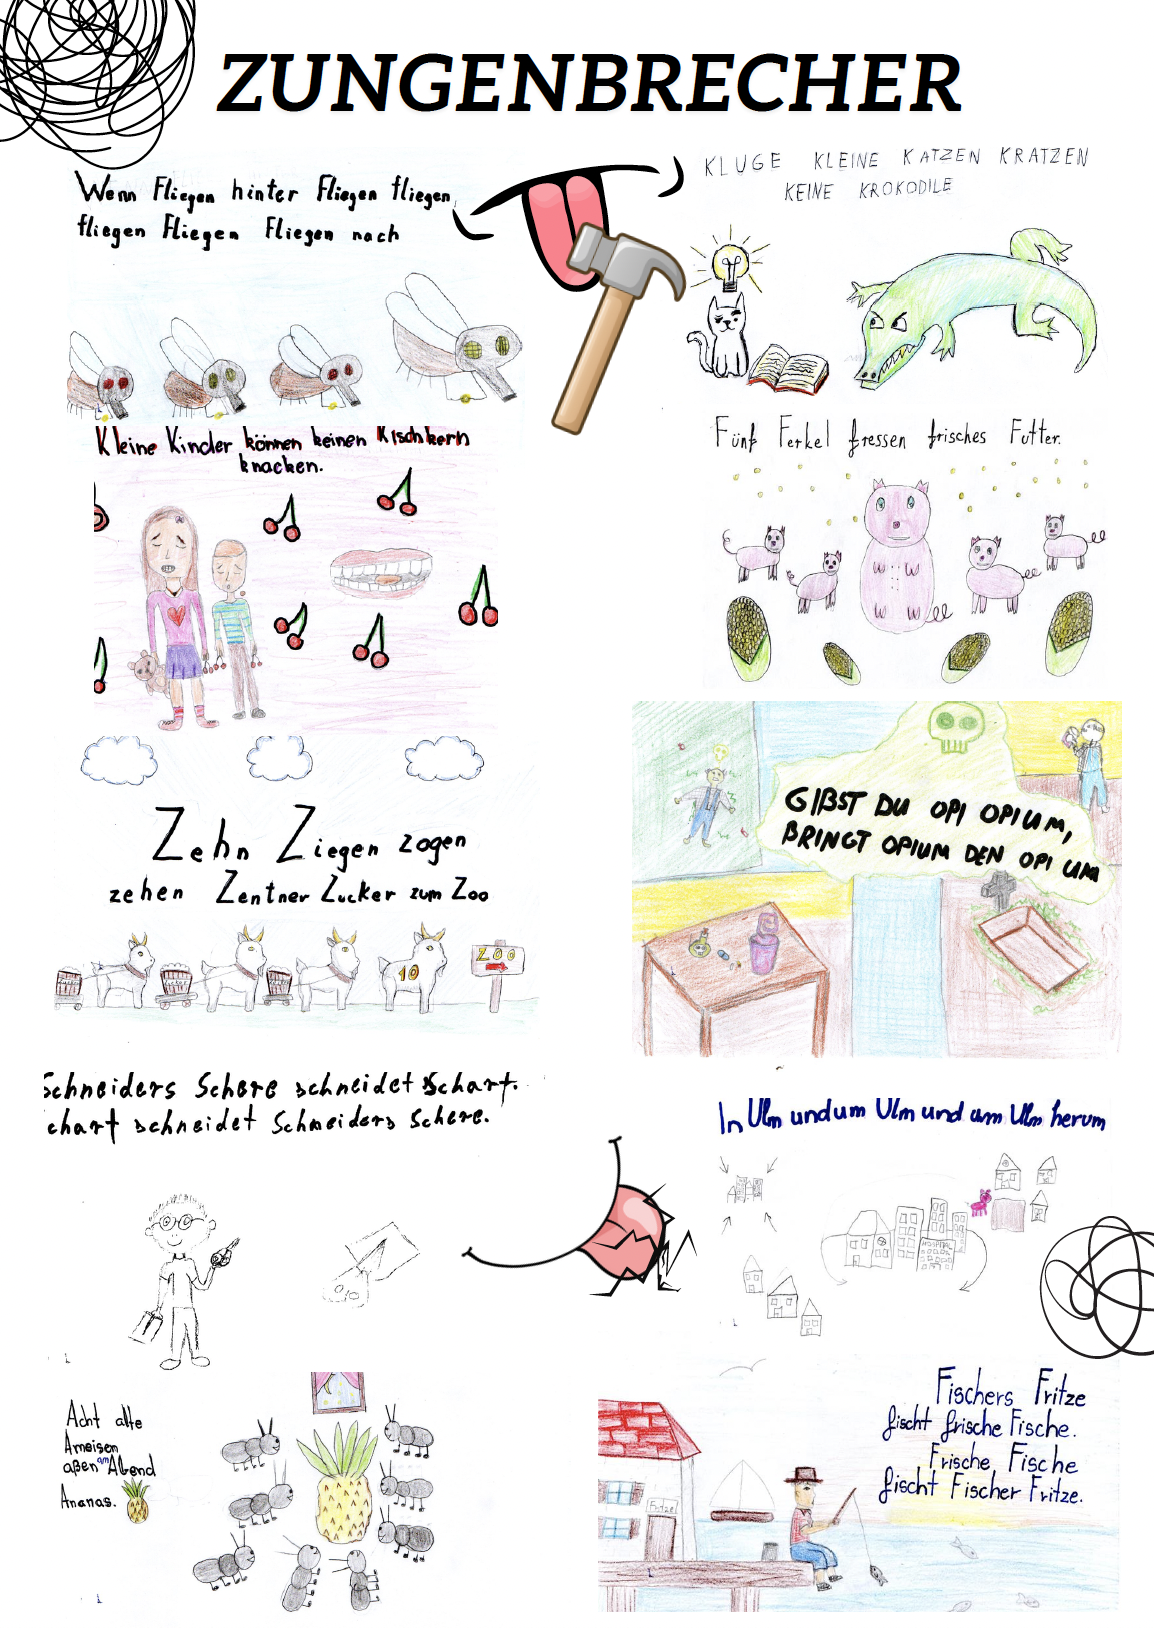 ZUNGENBRECHER
Wenn Fliegen hinter Fliegen fliegen,
fliegen Fliegen Fliegen nach
KLUGE KLEINE KATZEN KRATZEN
KEINE KROKODILE
Kleine Kinder können keinen Kischkern
knacken.
Fünf Ferkel fressen frisches Futter.
Zehn Ziegen zogen
zehen Zentner Zucker zum Zoo
10
ZOO
GIBST DU OPI OPIUM,
BRINGT OPIUM DEN OPI UM
Schneiders Schere schneidet Schart.
chart schneidet Schneiders Schere.
In Ulm und um Ulm und um Ulm herum
HOSPITAL
Acht alte
Ameisen
aßen am Abend
Ananas.
Fischers Fritze
fischt frische Fische.
Frische Fische
fischt Fischer Fritze.
Fritze